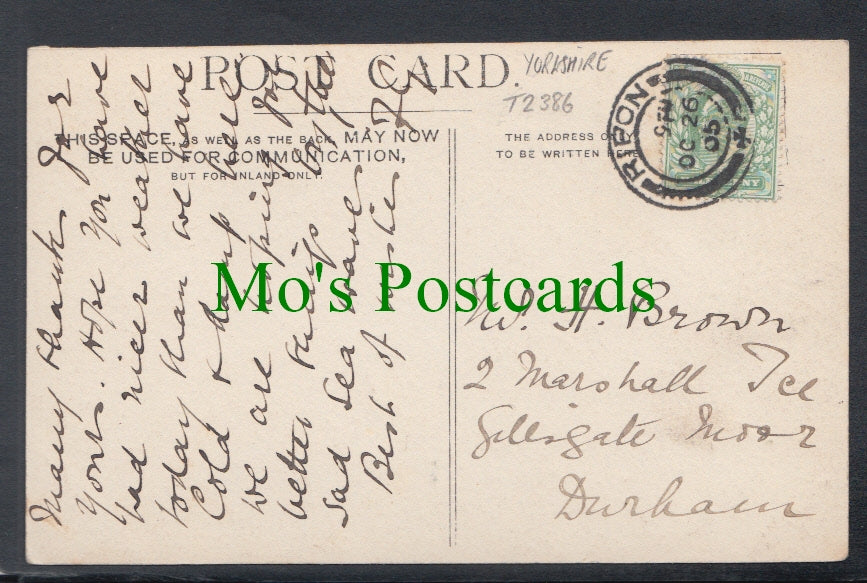 POST CARD.
YORKSHIRE
T2386
THIS SPACE, AS WELL AS THE BACK, MAY NOW
BE USED FOR COMMUNICATION,
BUT FOR INLAND ONLY.
THE ADDRESS ONLY
TO BE WRITTEN HERE
RIPON
OC 26
05
Many thanks for
yours. Hope you have
had nicer weather
today than we have
Cold & damp
we are hoping for
better things
sad sea waves
Best of wishes
Mo's Postcards
H. Brown
2 Marshall Tce
Gillsgate Moor
Durham